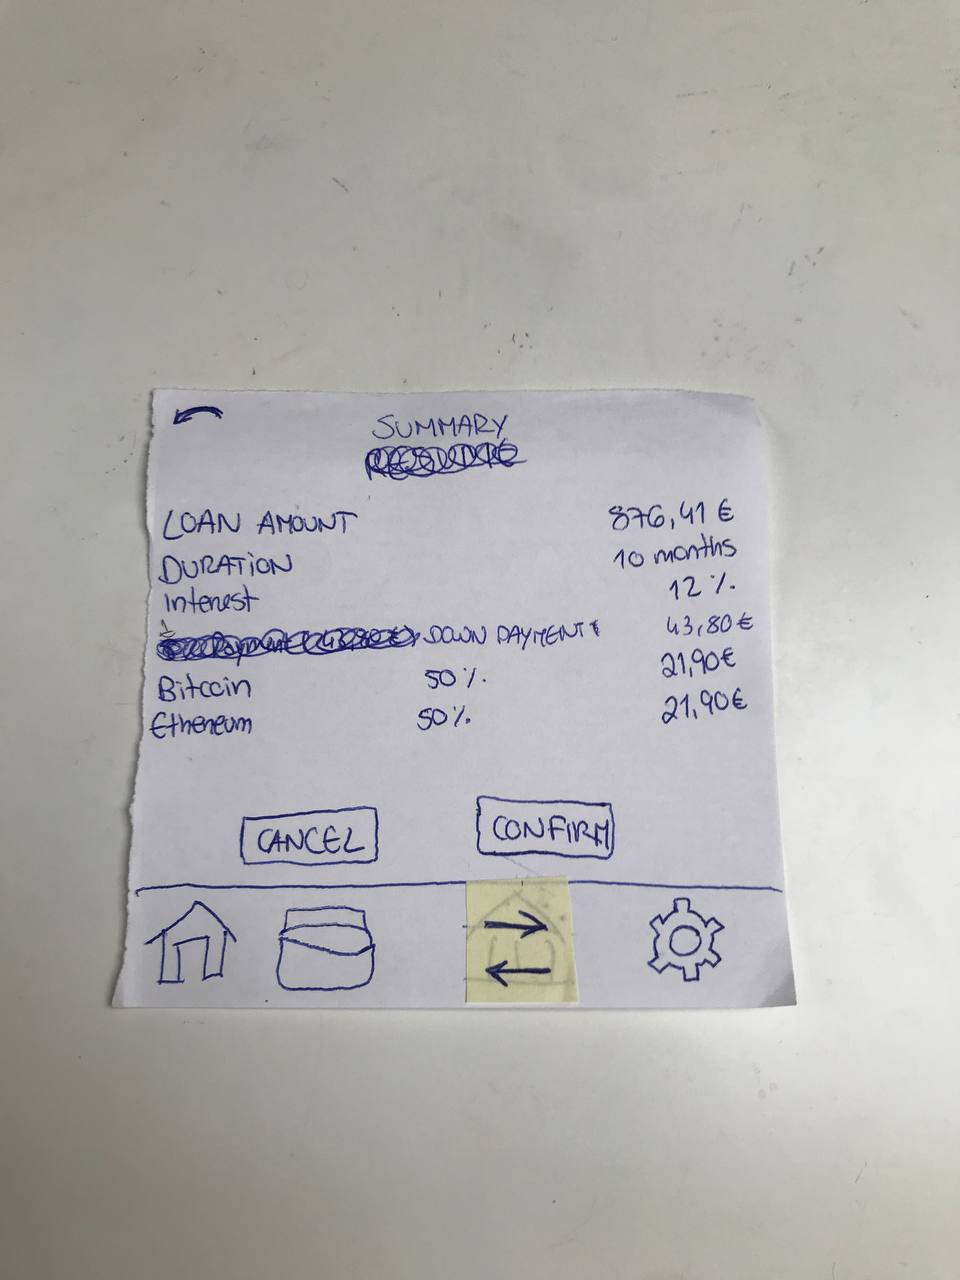 SUMMARY
LOAN AMOUNT 876,41 €
DURATION 10 months
Interest 12 %
DOWN PAYMENT 43,80 €
Bitcoin 50 % 21,90 €
Ethereum 50 % 21,90 €
CANCEL CONFIRM